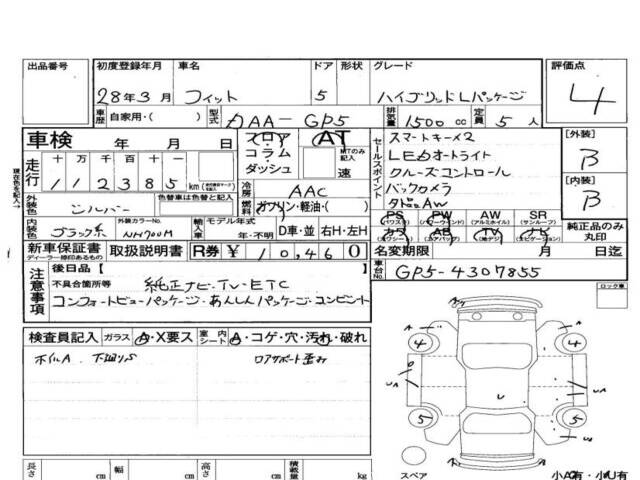 出品番号 初度登録年月 車名 ドア 形状 グレード 評価点
28年3月 フィット 5 ハイブリッドLパッケージ 4
車歴 自家用・( ) 型式 DAA-GP5 排気量 1500cc 定員 5人
車検 年 月 日 フロア AT セールスポイント スマートキー×2 [外装]
コラム MTのみ記入 LEDオートライト B
走行 十万千百十一 ダッシュ 速 クルーズコントロール
112385km 冷房 AAC バックカメラ [内装]
外装色 色替車は色替と記入 燃料 ガソリン・軽油・( ) 社外AW B
シルバー PS PW AW SR
(パワステ) (パワーウィンド) (アルミホイル) (サンルーフ)
内装色 ブラック系 外装カラーNo. NH700M 輸入車 モデル年式 年・不明 D車・並 右H・左H カワ AB TV ナビ 純正品のみ丸印
(エアバッグ) (地デジ)
新車保証書 取扱説明書 R券 ¥10,460 名変期限 月 日迄
ディーラー捺印あるもの
注意事項 後日品【 】 車台No. GP5-4307855
不具合箇所等 純正ナビ・TV・ETC
コンフォートビューパッケージ・あんしんパッケージ・コンビシート
ロック車
検査員記入 ガラス A・X要ス 室内シート A・コゲ・穴・汚れ・破れ
ホイルA 下廻りS ロアサポート歪み
A
4 4
U A
U
U A
5 5
長さ cm 幅 cm 高さ cm 積載量 kg
スペア 小A有・小U有
現在色を記入→